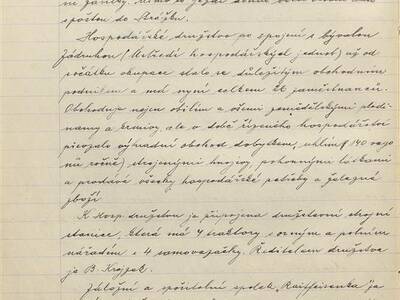 spojeno do
Hospodářské družstvo po spojení s bývalou
Zádruhou (Ústředí hospodářských jednot) už od
počátku okupace stalo se důležitým obchodním
podnikem a má nyní celkem 21 zaměstnanců.
Obchoduje nejen obilím a všemi zemědělskými plodi
namy a krmivy, ale v době řízeného hospodářství
převzalo výhradní obchod dobytkem, uhlím (140 vago
nů ročně) strojenými hnojivy, pohonnými látkami
a prodává všecky hospodářské potřeby a železné
zboží
K Hosp. družstvu je připojena družstevní strojní
stanice, která má 4 traktory s orným a polním
nářadím a 4 samovazačky. Ředitelem družstva
je B.
Záložní a spořitelní spolek „Raiffeisenka" je